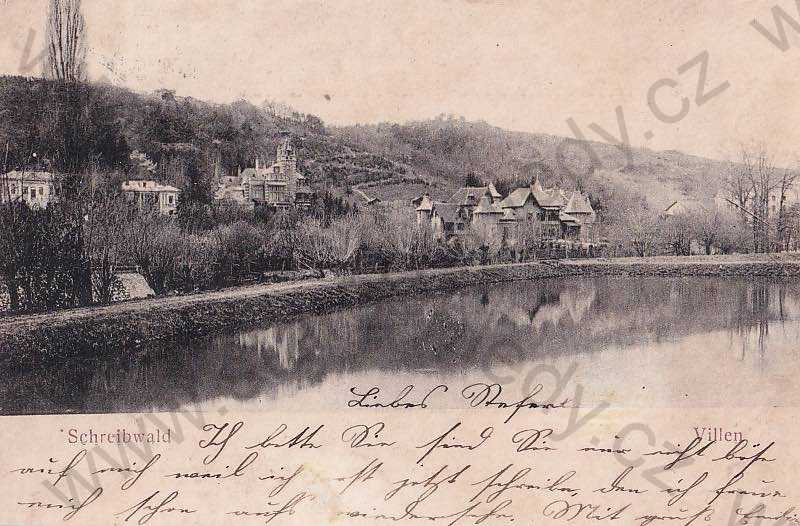 Liebes Stefer
Schreibwald
Villen
Ich bitte Sie sind Sie nur nicht böse
auf mich weil ich erst jetzt schreibe, den ich freue
mich schon aufs wiedersehen. Mit gruß
www.pohledy.cz